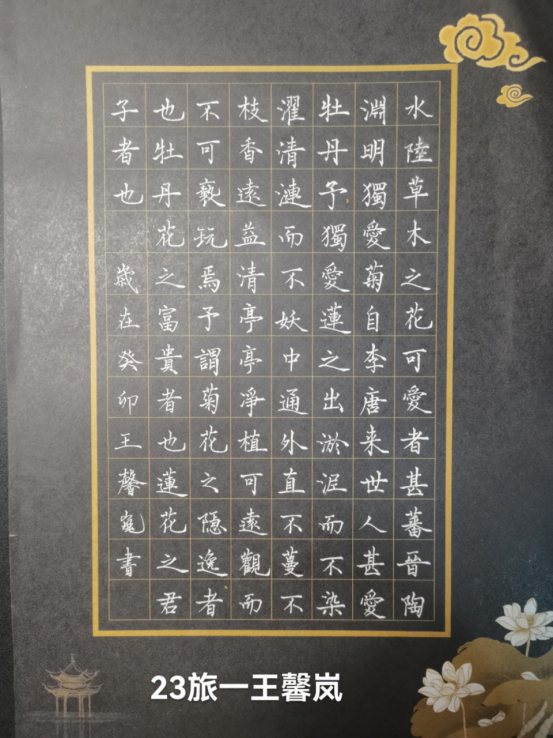 水陸草木之花可愛者甚蕃晉陶
淵明獨愛菊自李唐来世人甚愛
牡丹予獨愛蓮之出淤泥而不染
濯清漣而不妖中通外直不蔓不
枝香遠益清亭亭淨植可遠觀而
不可褻玩焉予謂菊花之隱逸者
也牡丹花之富貴者也蓮花之君
子者也 歲在癸卯王馨書
23旅一王馨岚